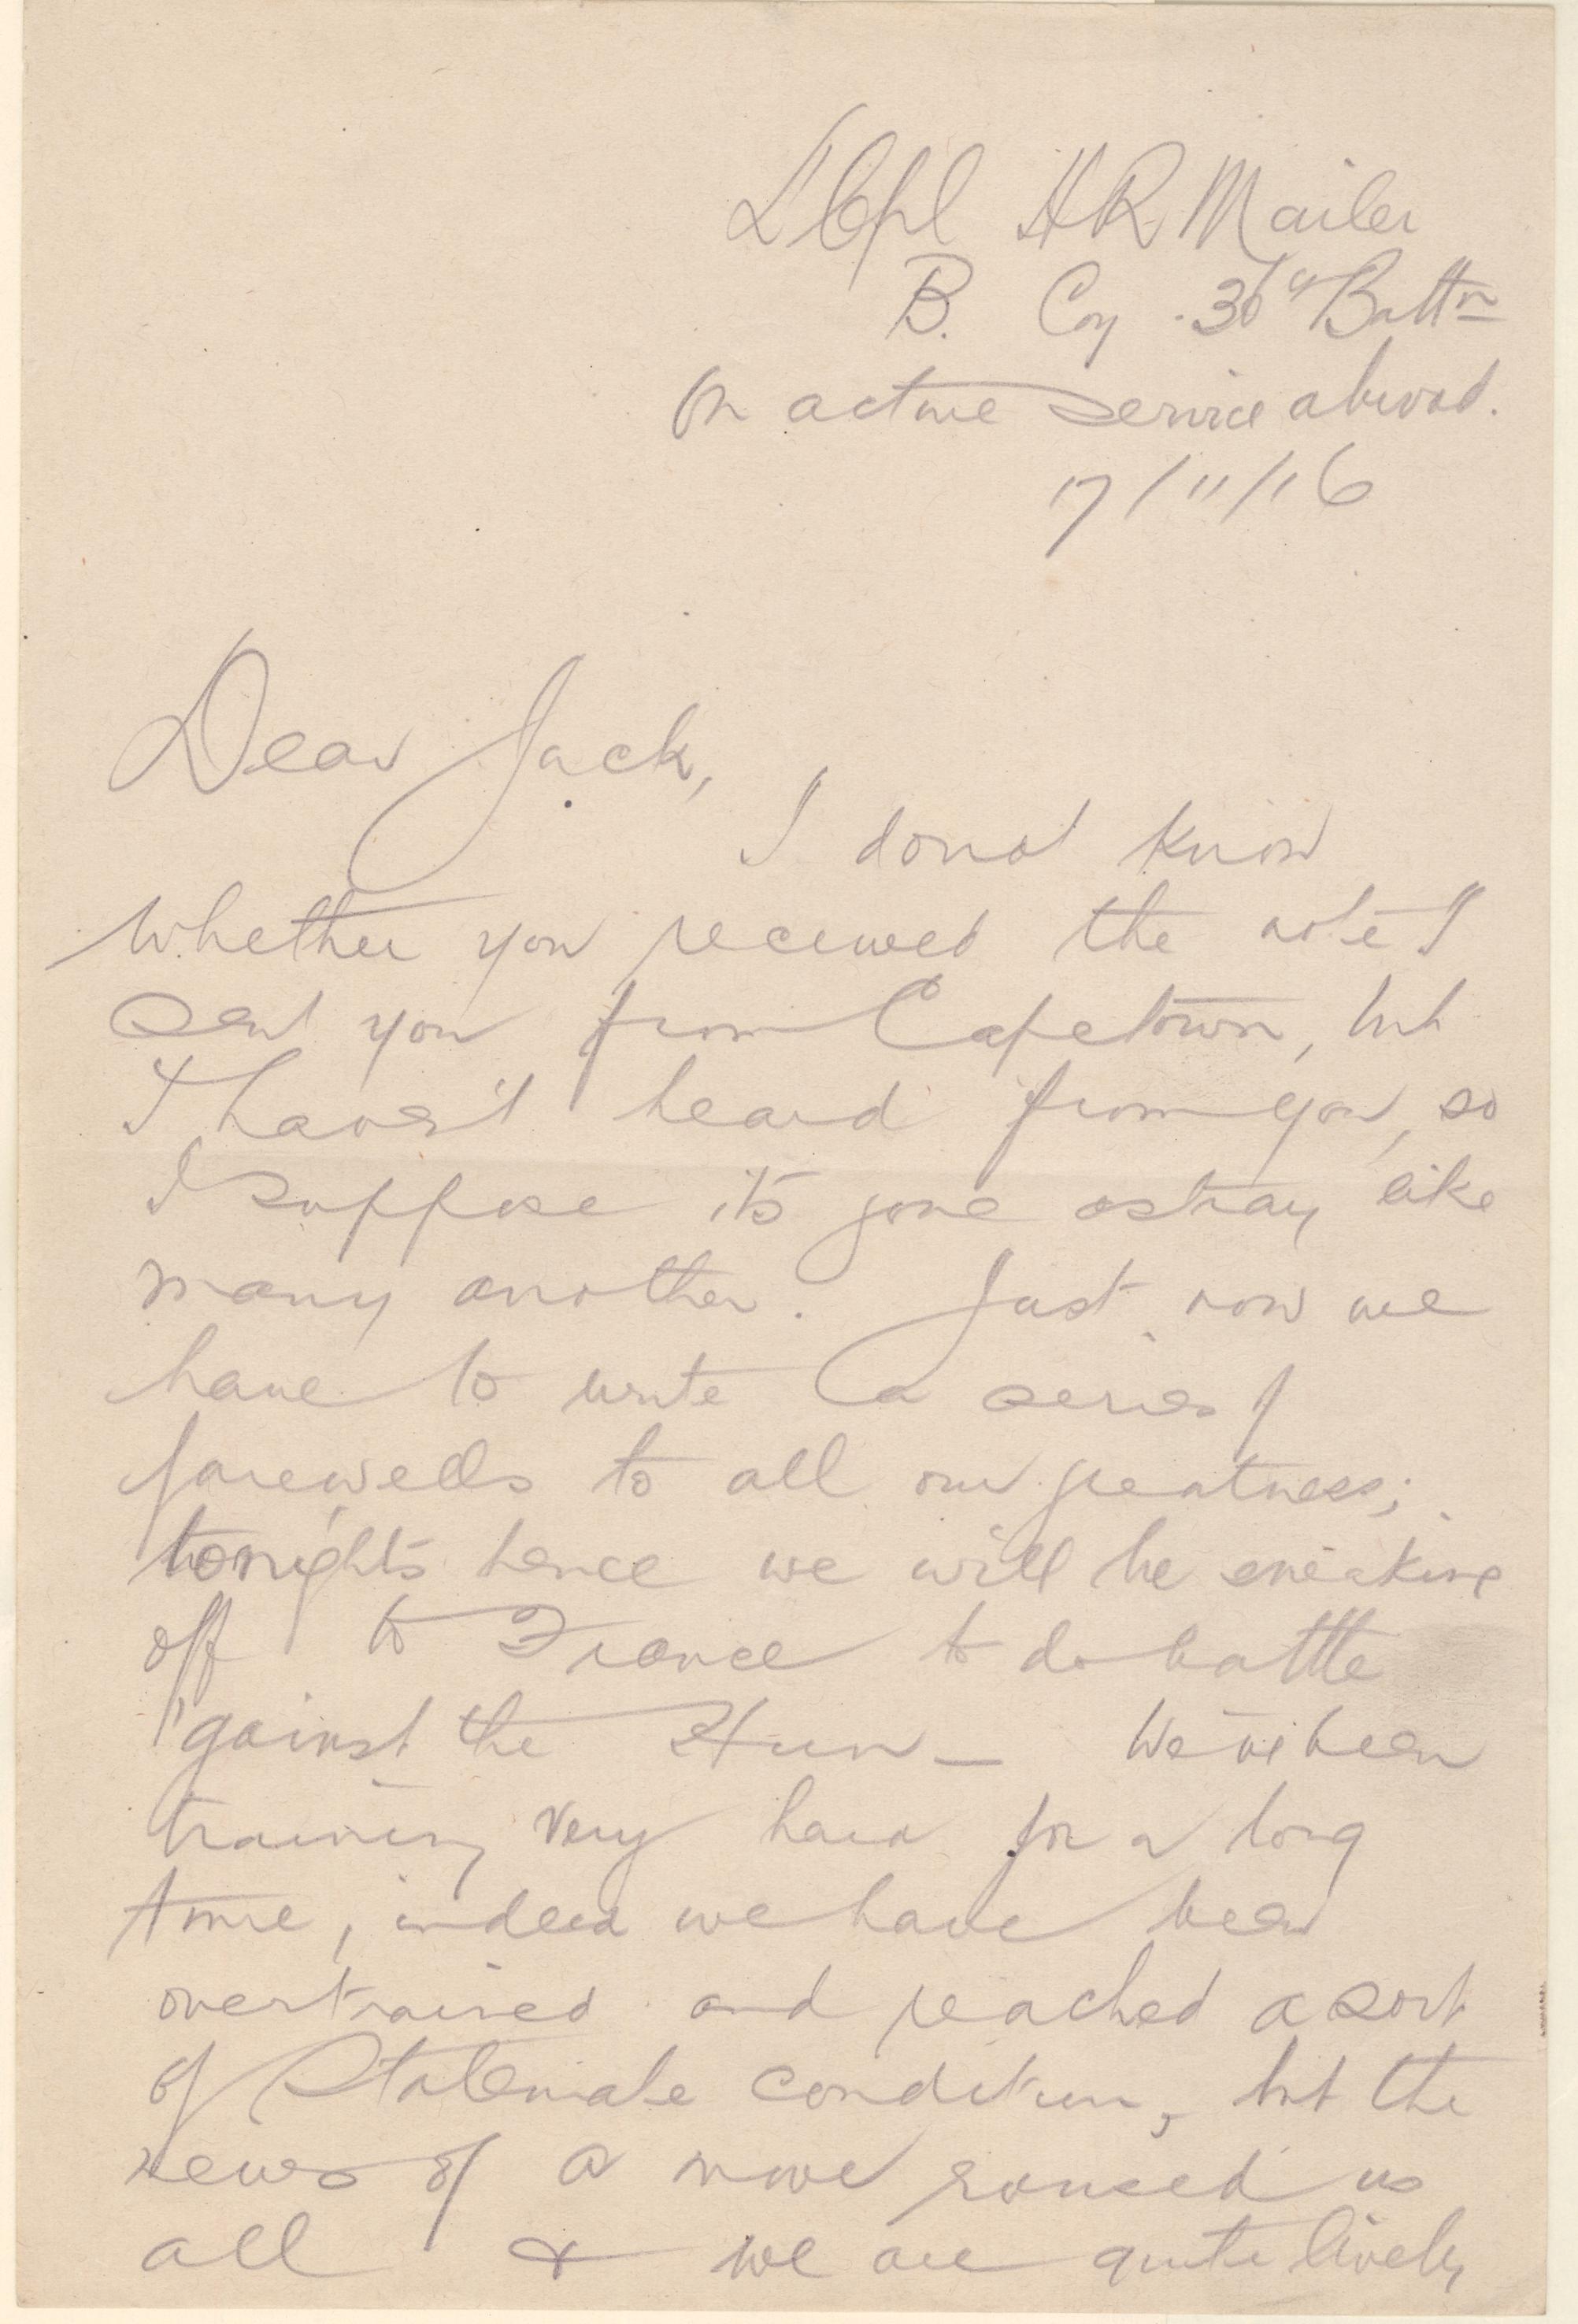 L Cpl HR Mailer
B. Coy. 36th Battn
On active service abroad.
17/11/16
Dear Jack,
I donot know
whether you received the note I
sent you from Capetown, but
I haven't heard from you, so
I suppose it's gone astray like
many another. Just now we
have to write a series of
farewells to all our greatness;
tonights hence we will be sneaking
off to France to do battle
'gainst the Hun — We've been
training very hard for a long
time, indeed we have been
overtrained and reached a sort
of Stalemate condition, but the
news of a move roused us
all & we are quite lively